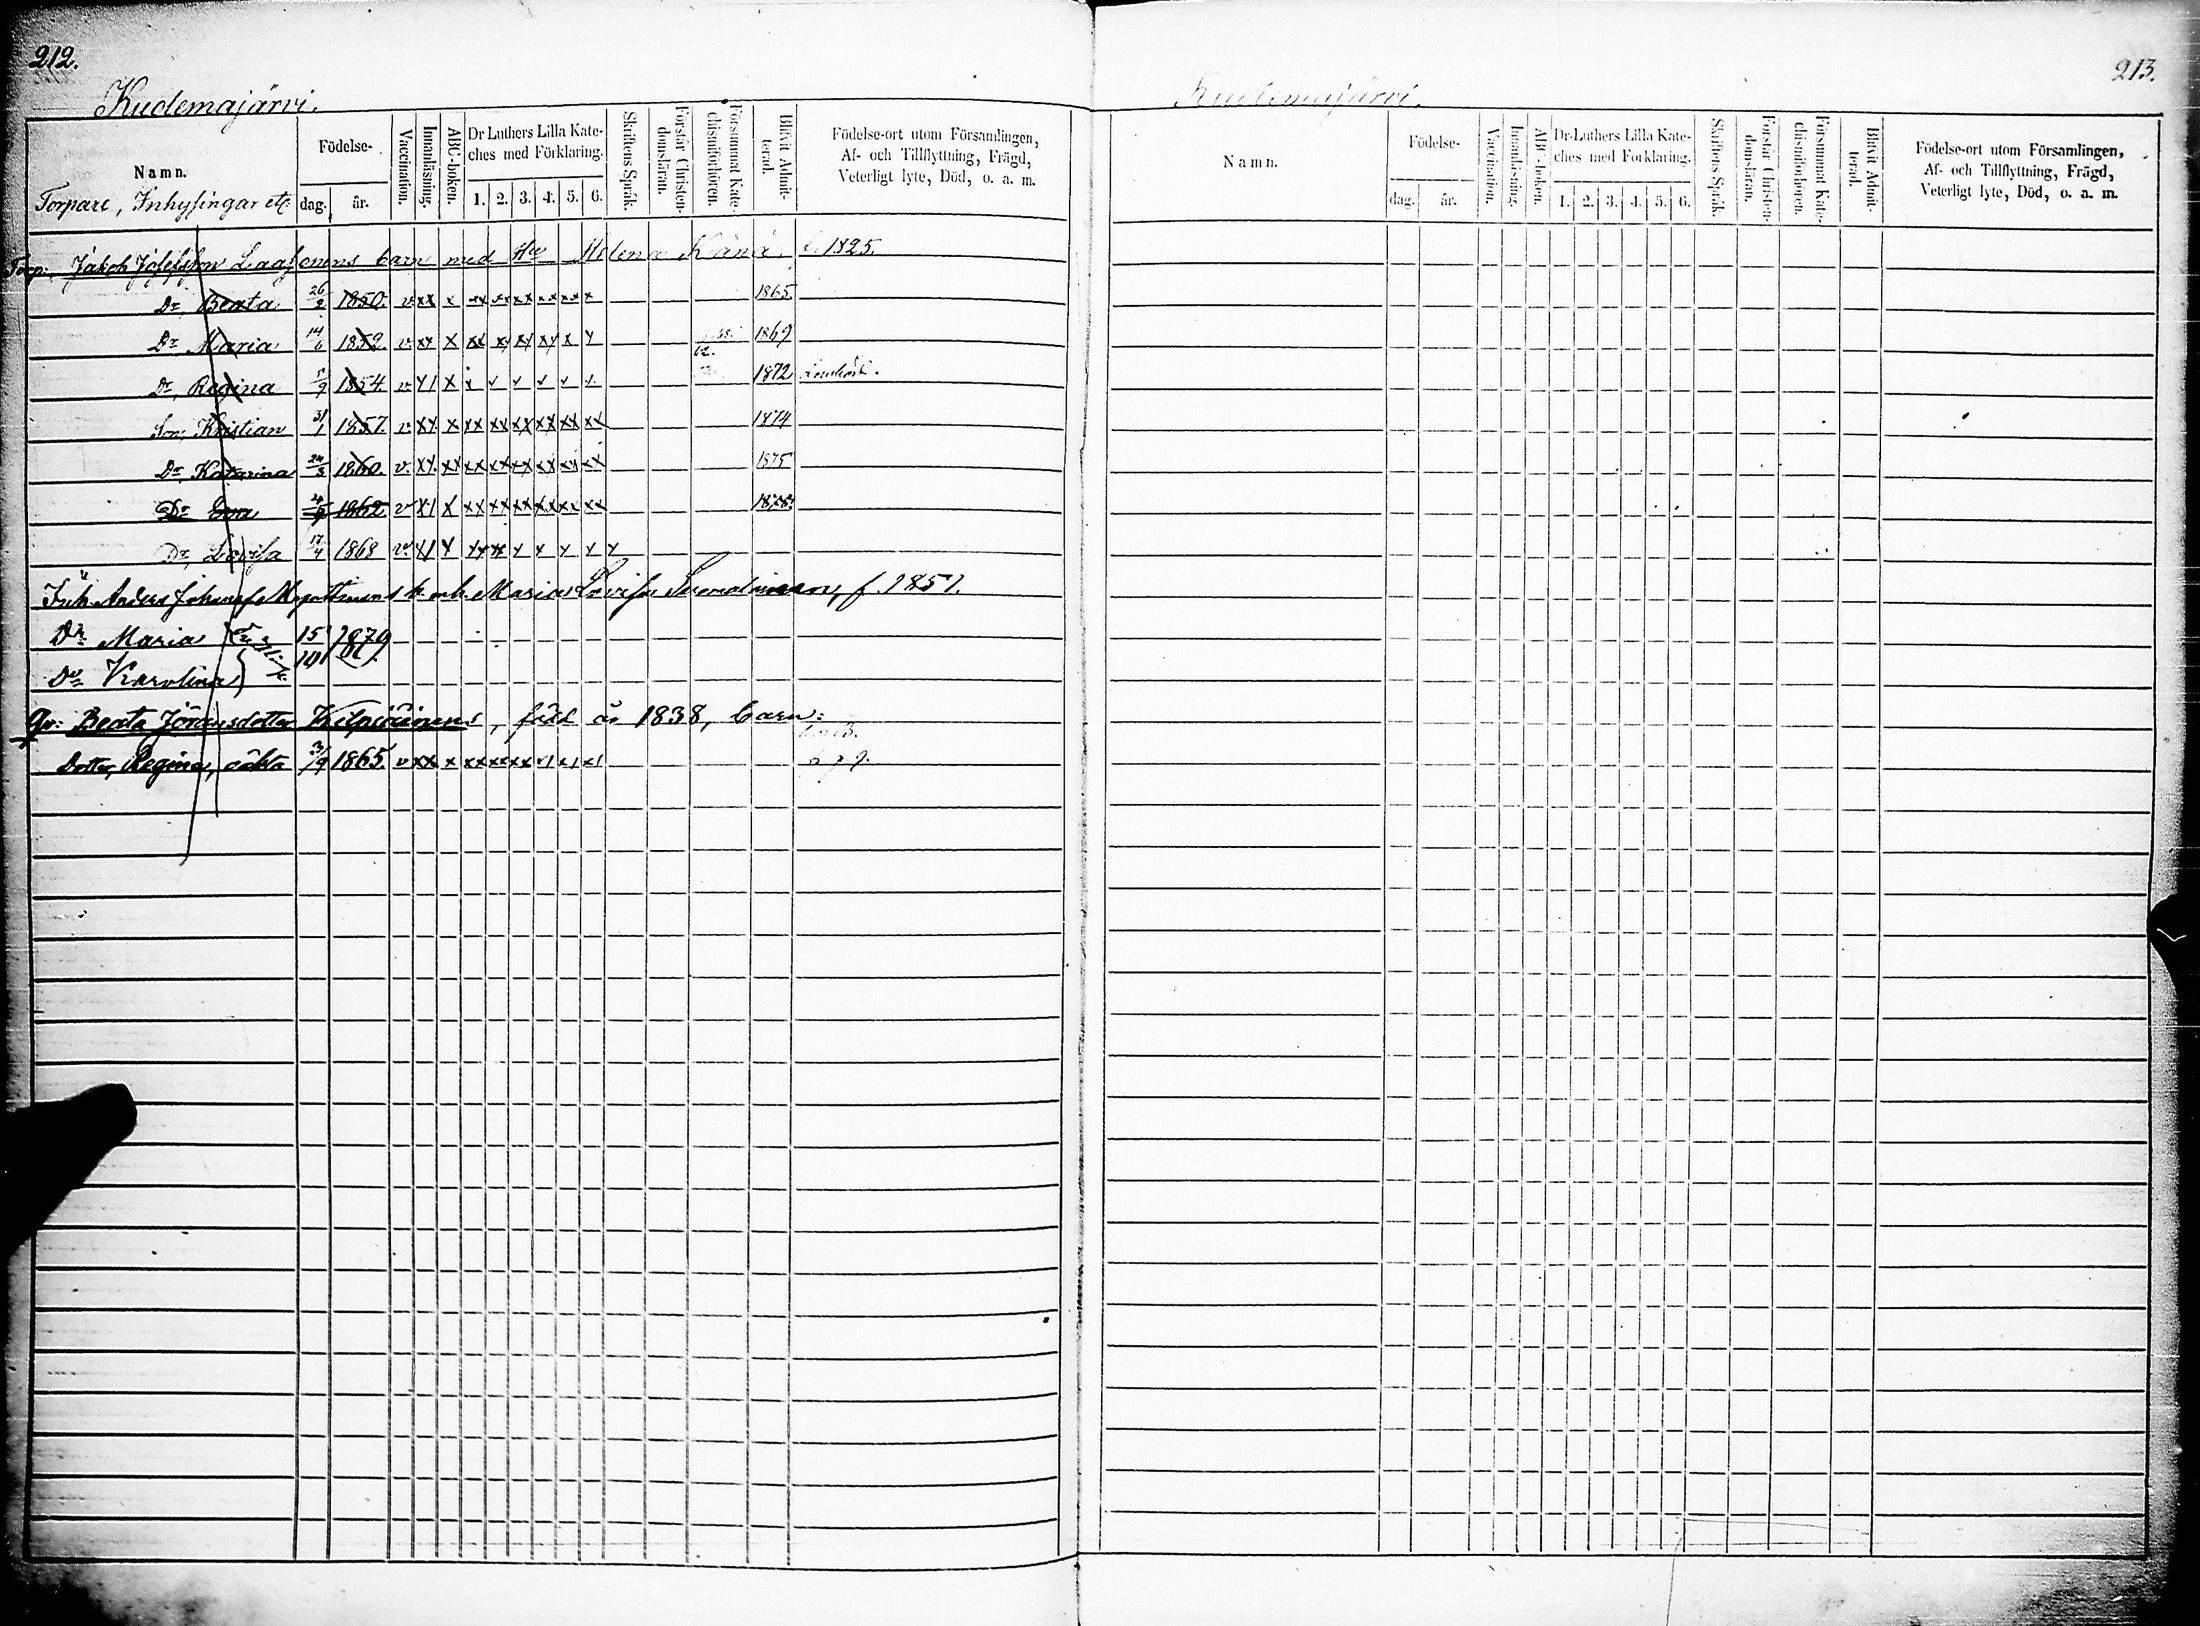 212.
Kudemajärvi.
Namn.
Torpare, Inhysingar etc.
Födelse-
dag.
år.
Vaccination.
Innanläsning.
ABC-boken.
Dr Luthers Lilla Kate-
ches med Förklaring.
1. 2. 3. 4. 5. 6.
Skriftens Språk.
Förstår Christen-
domsläran.
Försummat Kate-
chismiförhören.
Blifvit Admit-
terad.
Födelse-ort utom Församlingen,
Af- och Tillflyttning, Frägd,
Veterligt lyte, Död, o. a. m.
Torp. Jakob Josefsson Laasonens barn med Hu Helena Känä f. 1825.
Dr, Beata 26/2 1850. v. xx x xx xx xx xx xx x 1865.
Dr Maria 14/6 1852. v. 1869
Dr, Regina 1854 v 1872
Son, Kristian 31/1 1857. v xx x xx xx xx xx xx xx 1874
Dr, Katarina 24/3 1860. v. xx xx xx xx xx xx xx xx 1875
Dr 1862 v x xx xx xx xx xx xx 1878.
Dr, Lovisa 17/4 1868 v
Inh. Anders Johansf. m. h. Maria Lovisa f. 1851.
Dr Maria 15/10 1879.
Dr Karolina
Beata Jöransdotter född år 1838, barn:
Dotter, Regina, oäkta 3/9 1865. v xx x xx xx xx
213.
Kudemajärvi.
Namn.
Födelse-
dag.
år.
Vaccination.
Innanläsning.
ABC-boken.
Dr Luthers Lilla Kate-
ches med Förklaring.
1. 2. 3. 4. 5. 6.
Skriftens Språk.
Förstår Christen-
domsläran.
Försummat Kate-
chismiförhören.
Blifvit Admit-
terad.
Födelse-ort utom Församlingen,
Af- och Tillflyttning, Frägd,
Veterligt lyte, Död, o. a. m.